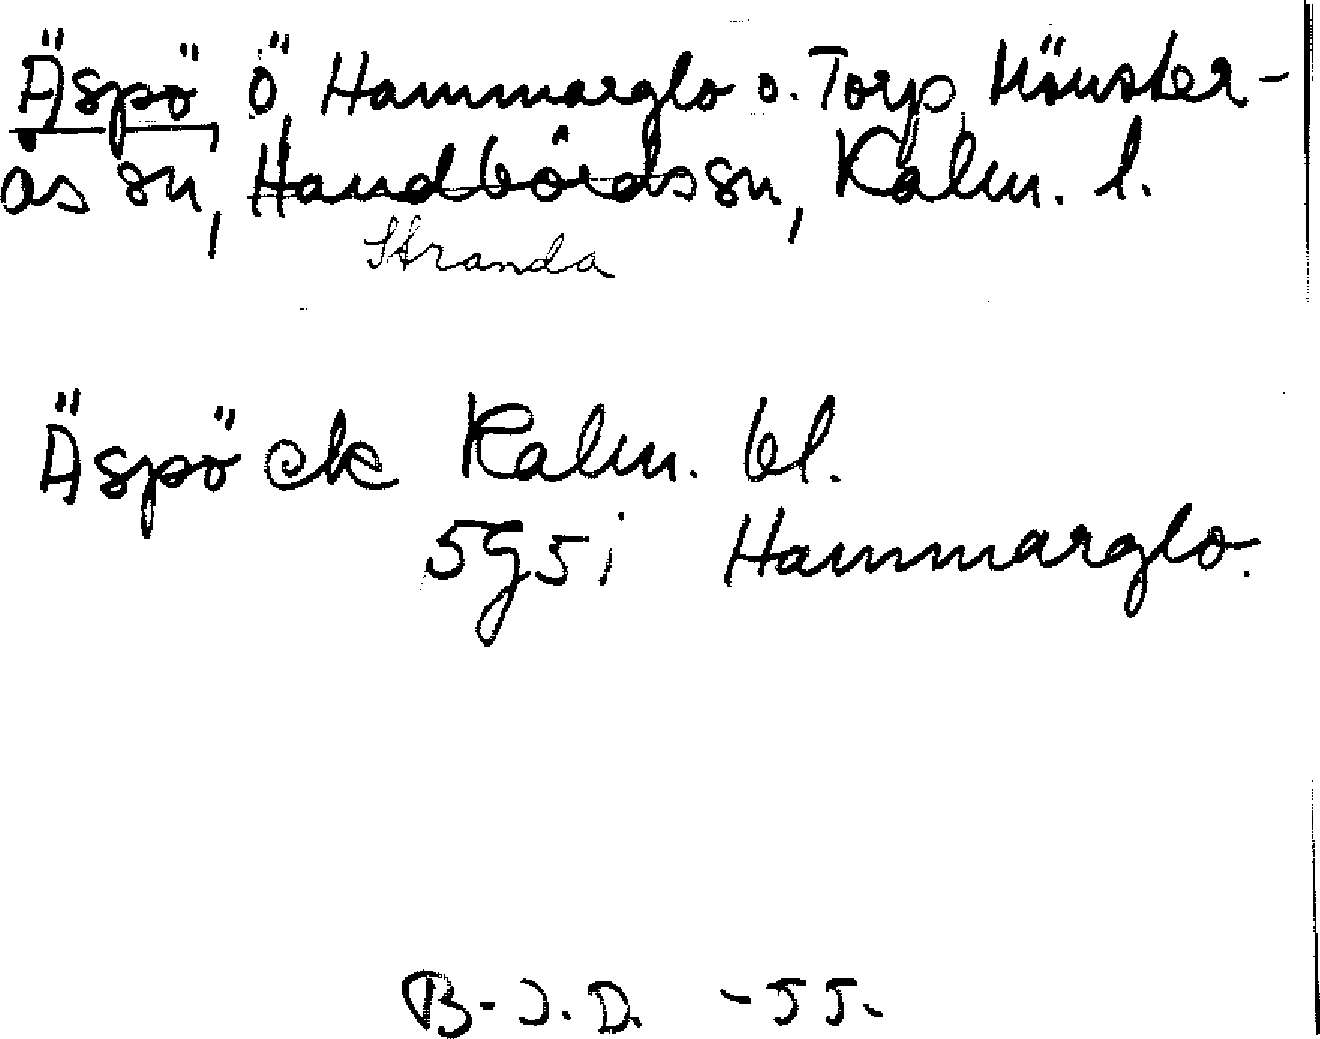 Äspö, ö, Hammarglo o. Torp, Mönster-
ås sn, Handbördssn, Kalm. l.
Stranda
Äspö ek Kalm. bl.
5G5i Hammarglo.
B-J.D. -55-